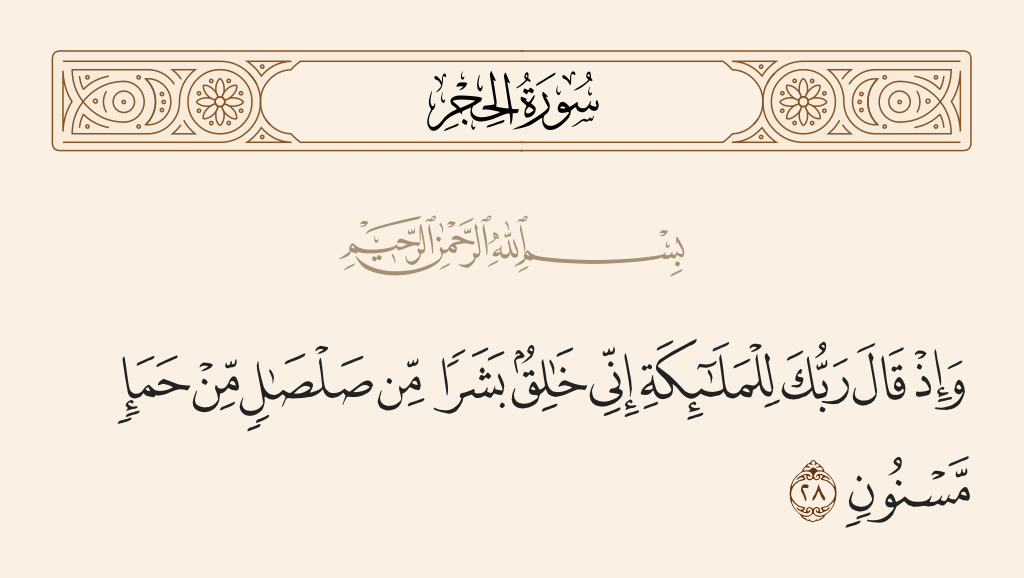 سُورَةُ الحِجْرِ
بِسْمِ ٱللَّهِ ٱلرَّحْمَٰنِ ٱلرَّحِيمِ
وَإِذْ قَالَ رَبُّكَ لِلْمَلَـٰٓئِكَةِ إِنِّى خَـٰلِقٌۢ بَشَرًا مِّن صَلْصَـٰلٍ مِّنْ حَمَإٍ
مَّسْنُونٍ ٢٨